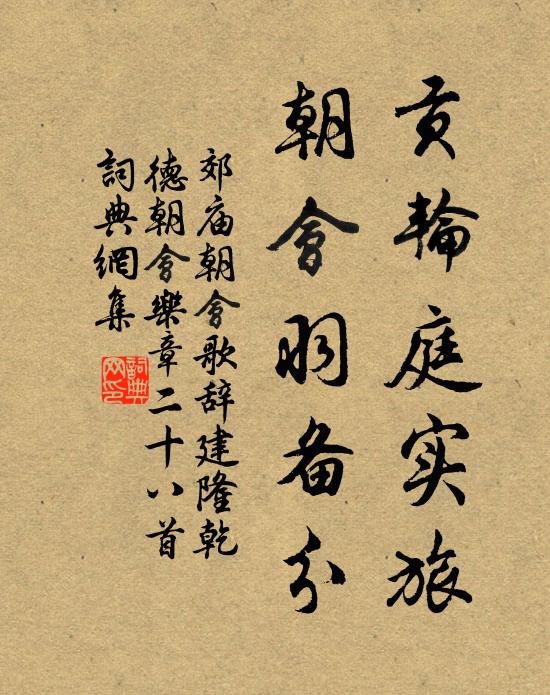 贡輪庭实旅
朝會羽备分
郊庙朝會歌辞建隆乾
德朝會樂章二十八首
詞典網集
詞典網印